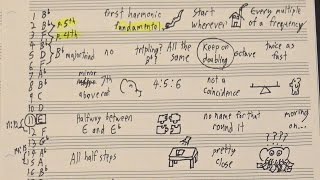 1 Bb first harmonic Start Every multiple
2 Bb P. 5th fundamental wherever of a frequency
3 F P. 4th
4 Bb tripling? All the Keep on twice as
5 D Bb major triad no same doubling octave fast
6 F
7 Ab minor 7th 4:5:6 not a
8 Bb above root coincidence
9 C
10 D
11 E Halfway between no name for that moving
12 F E and Eb round it on...
13 Gb
14 Ab All half steps pretty
15 A close
16 Bb